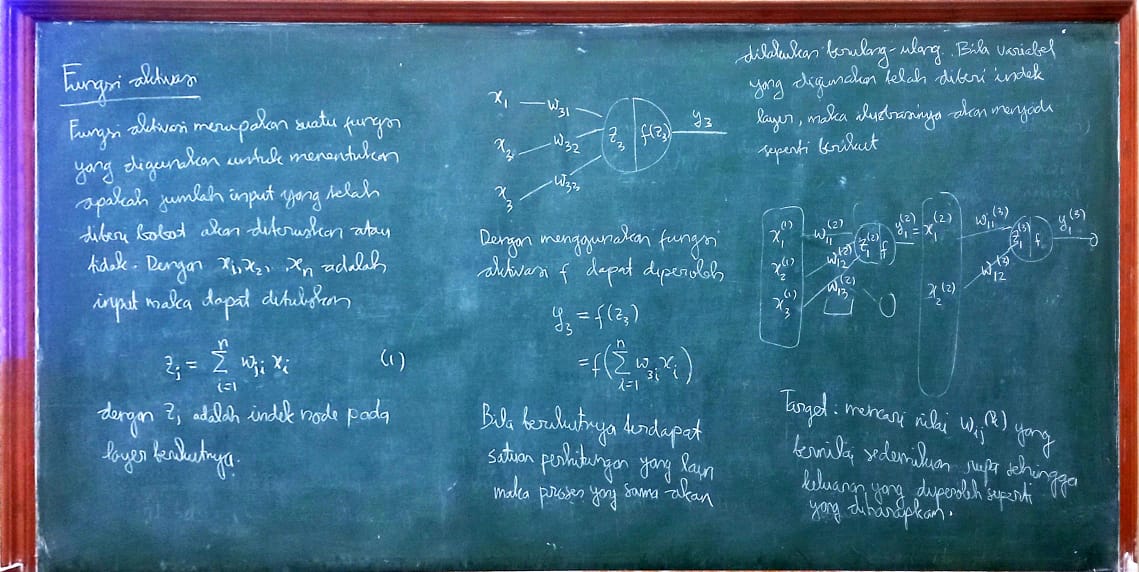 Fungsi aktivasi
Fungsi aktivasi merupakan suatu fungsi
yang digunakan untuk menentukan
apakah jumlah input yang telah
diberi bobot akan diteruskan atau
tidak. Dengan x₁, x₂, .., xₙ adalah
input maka dapat dituliskan
zⱼ = Σᵢ₌₁ⁿ wⱼᵢ xᵢ (1)
dengan zⱼ adalah indek node pada
layer berikutnya.
x₁ w₃₁
x₂ w₃₂ z₃ f(z₃) y₃
x₃ w₃₃
Dengan menggunakan fungsi
aktivasi f dapat diperoleh
y₃ = f(z₃)
= f(Σᵢ₌₁ⁿ w₃ᵢ xᵢ)
Bila berikutnya terdapat
satuan perhitungan yang lain
maka proses yang sama akan
dilakukan berulang-ulang. Bila variabel
yang digunakan telah diberi indek
layer, maka ilustrasinya akan menjadi
seperti berikut
x₁⁽¹⁾ w₁₁⁽²⁾ z₁⁽²⁾ f y₁⁽²⁾ = x₁⁽²⁾ w₁₁⁽³⁾ z₁⁽³⁾ f y₁⁽³⁾
x₂⁽¹⁾ w₁₂⁽²⁾ x₂⁽²⁾ w₁₂⁽³⁾
x₃⁽¹⁾ w₁₃⁽²⁾
Target : mencari nilai wᵢⱼ⁽ᵏ⁾ yang
bernilai sedemikian rupa sehingga
keluaran yang diperoleh seperti
yang diharapkan.